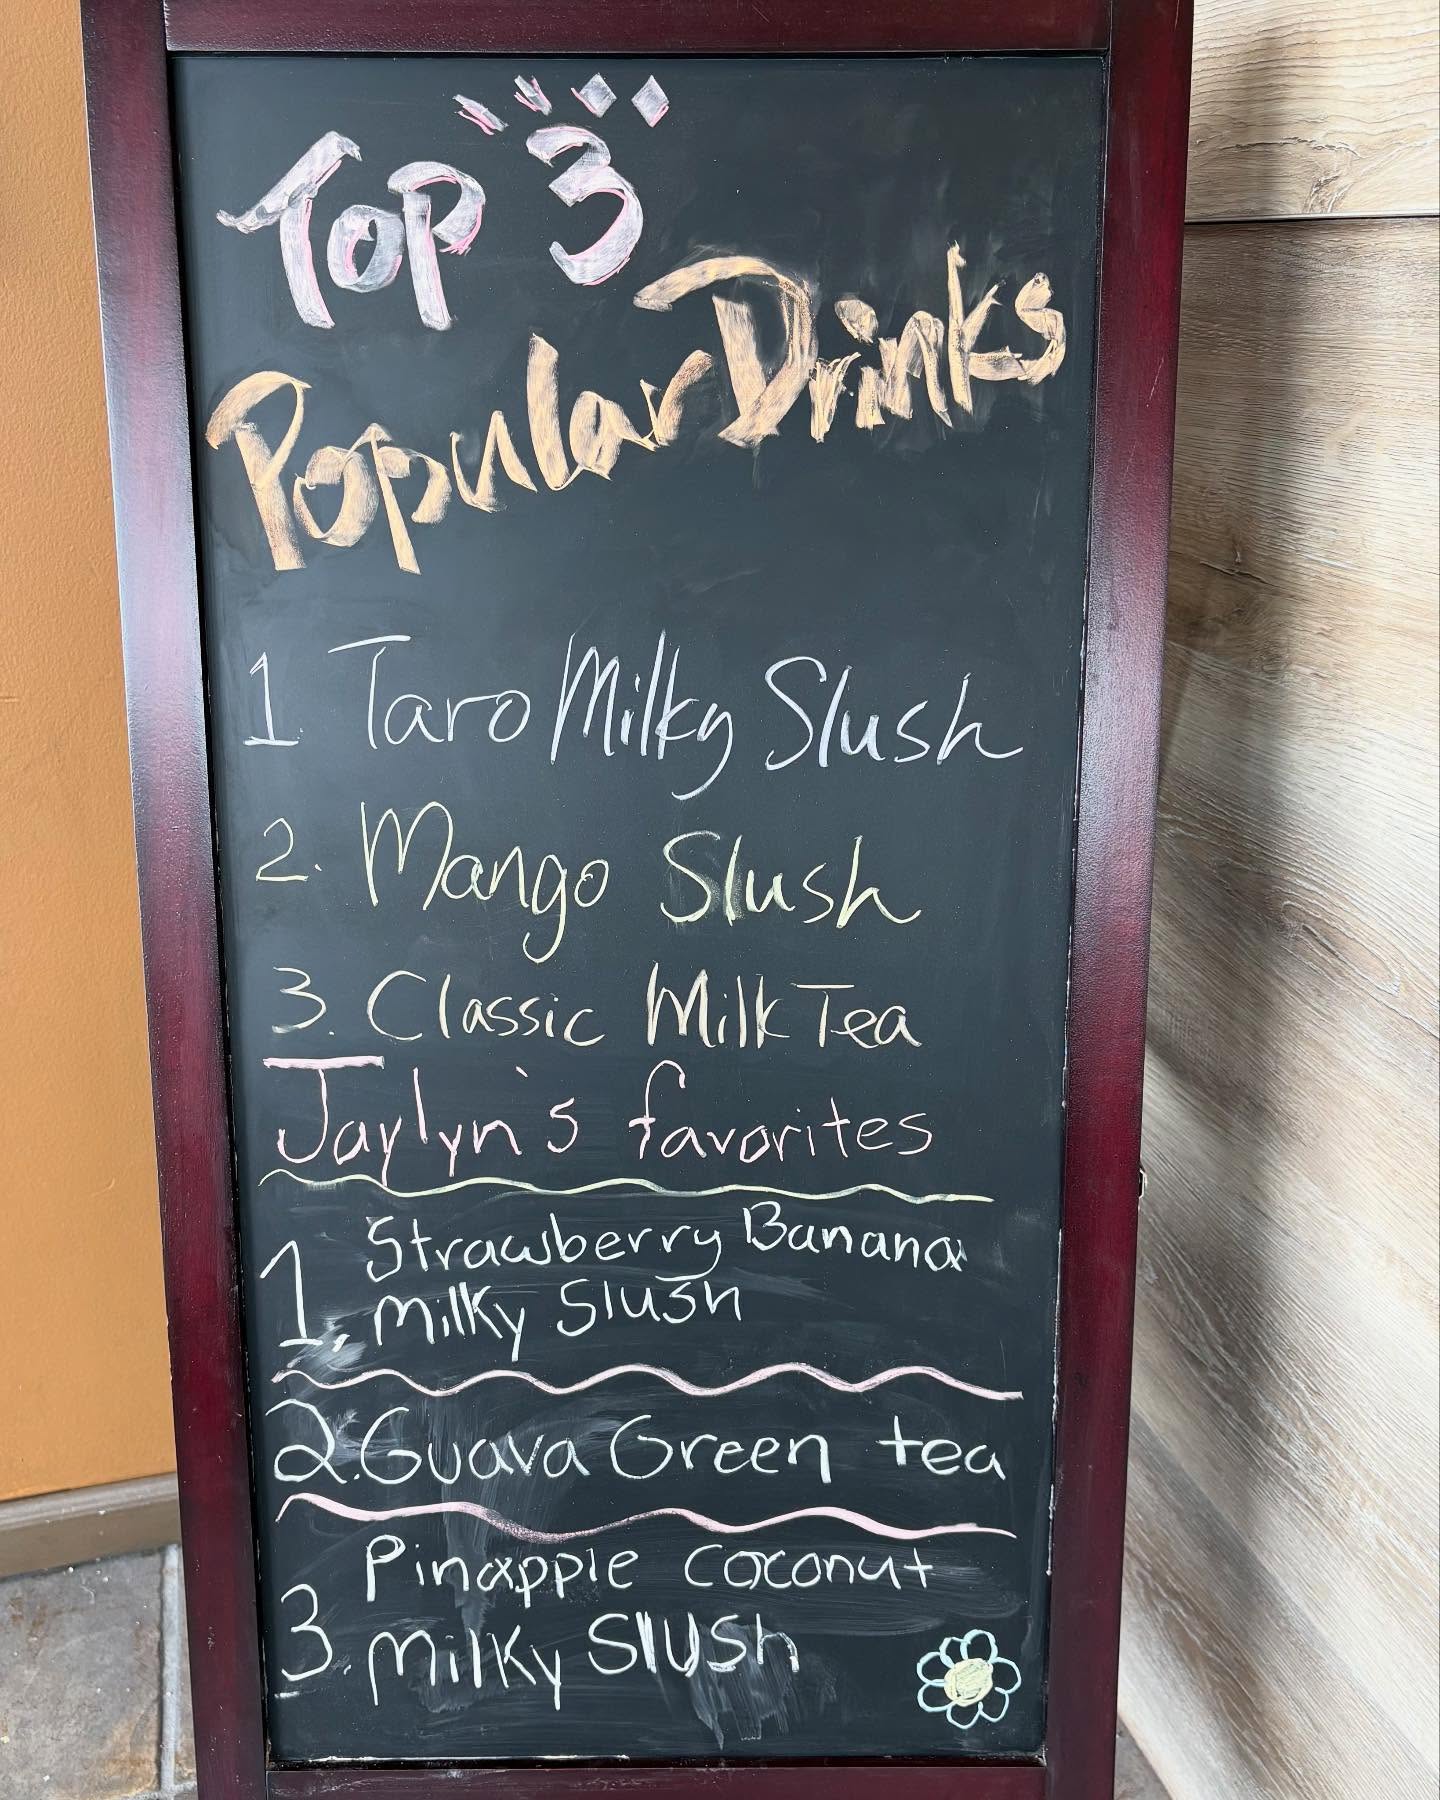 Top 3
Popular Drinks
1. Taro Milky Slush
2. Mango Slush
3. Classic Milk Tea
Jaylyn's favorites
1. Strawberry Banana
Milky Slush
2. Guava Green tea
3. Pinapple coconut
Milky Slush